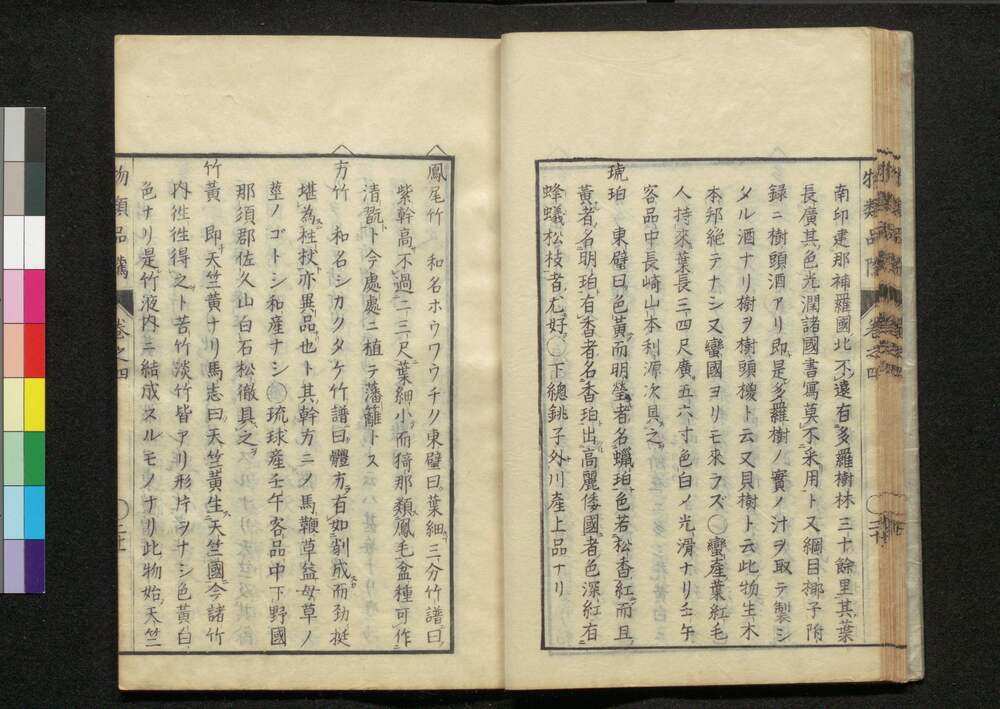 南印建那補羅國北不遠有多羅樹林三十餘里其葉
長廣其色光潤諸國書寫莫不采用ト又綱目椰子附
録ニ樹頭酒アリ即是多羅樹ノ實ノ汁ヲ取テ製シ
タル酒ナリ樹ヲ樹頭椶ト云又貝樹ト云此物生木
本邦絶テナシ又蠻國ヨリモ來ラズ〇蠻產葉紅毛
人持來葉長三四尺廣五六寸色白ノ光滑ナリ壬午
客品中長崎山本利源次具之
琥珀 東璧曰色黄而明瑩者名蠟珀色若松香紅而且
黄者名明珀有香者名香珀出高麗倭國者色深紅有
蜂蟻松枝者尤好〇下總銚子外川產上品ナリ
物類品隲 卷之四
鳳尾竹 和名ホウワウチク東璧曰葉細三分竹譜曰
紫幹高不過二三尺葉細小而猗那類鳳毛盆種可作
清翫ト今處處ニ植テ藩籬トス
方竹 和名シカクダケ竹譜曰體方有如削成而勁挺
堪為柱杖亦異品也ト其幹方ニノ馬鞭草益母草ノ
莖ノゴトシ和產ナシ〇琉球產壬午客品中下野國
那須郡佐久山白石松徹具之
竹黄 即天竺黄ナリ馬志曰天竺黄生天竺國今諸竹
内徃徃得之ト苦竹淡竹皆アリ形片ヲナシ色黄白
色ナリ是竹液内ニ結成スルモノナリ此物始天竺
物類品隲 卷之四